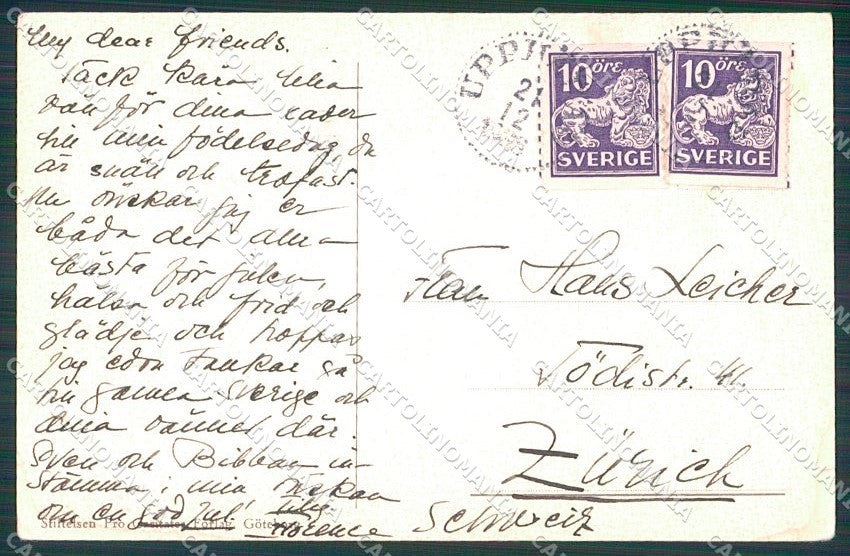 My dear friends.
Tack kära lilla
vän för dina rader
till min födelsedag du
är snäll och trofast.
Nu önskar jag er
båda det allra
bästa för julen,
hälsa och frid och
glädje och hoppas
jag edra tankar gå
till gamla Sverige och
dina vänner där.
Sven och Bibban in-
stämma i min önskan
om en god jul!
Florence
Stiftelsen Pro Caritate Förlag, Göteborg
UPPH
21
12
10 ÖRE
SVERIGE
10 ÖRE
SVERIGE
Hans Leicher
Tödistr. 41.
Zürich
Schweiz
CARTOLINOMANIA